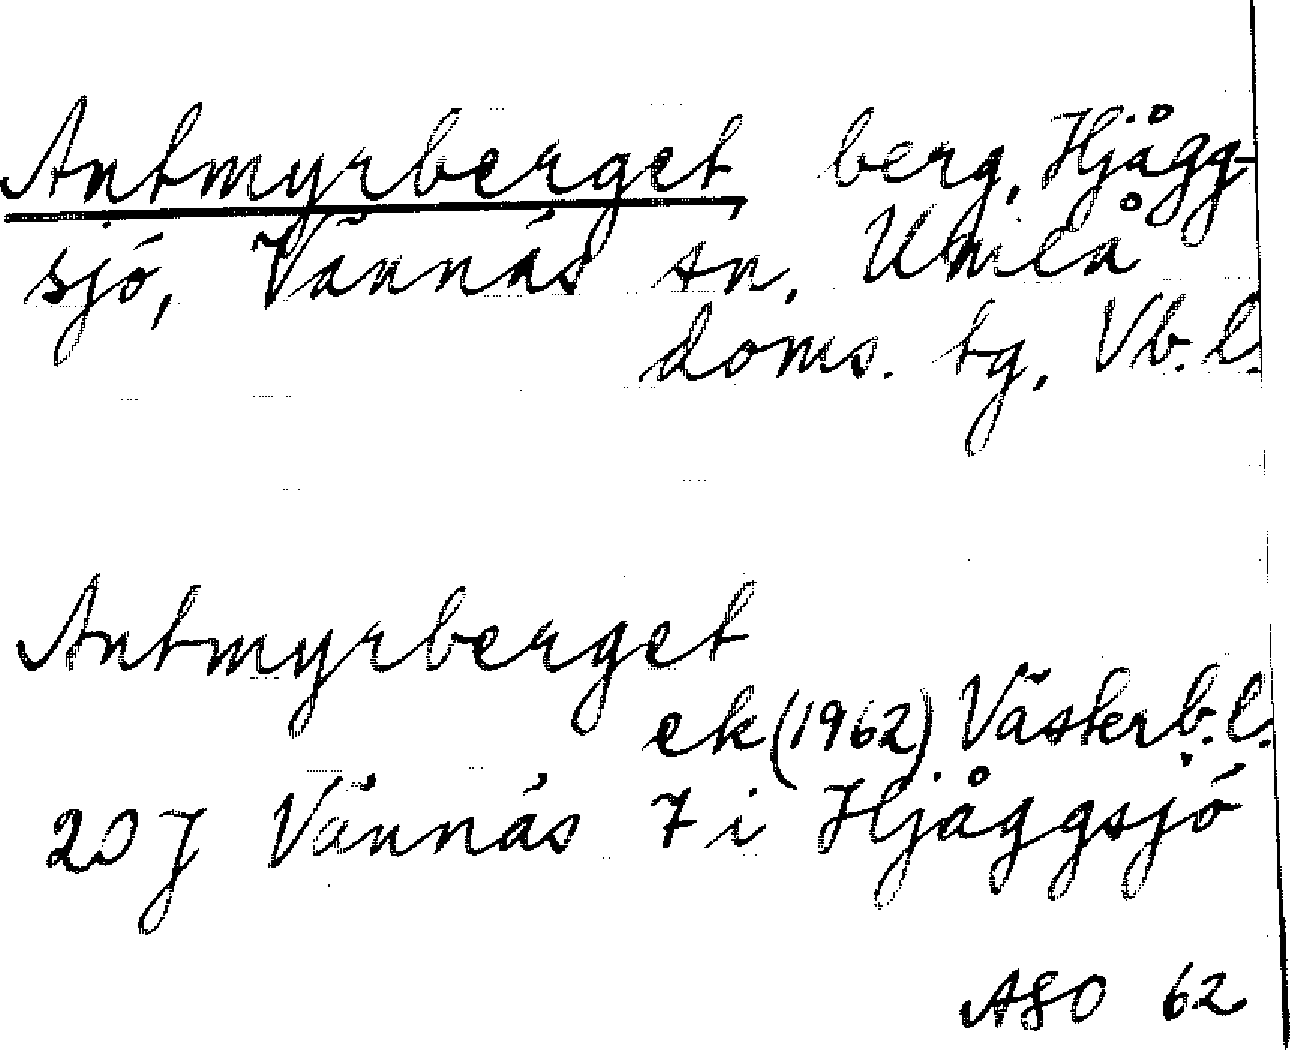 Antmyrberget berg, Hjågg-
sjö, Vännäs sn, Umeå
doms. tg, Vb. l.
Antmyrberget
ek (1962) Västerb. l.
20J Vännäs 7 i Hjåggsjö
ASO 62